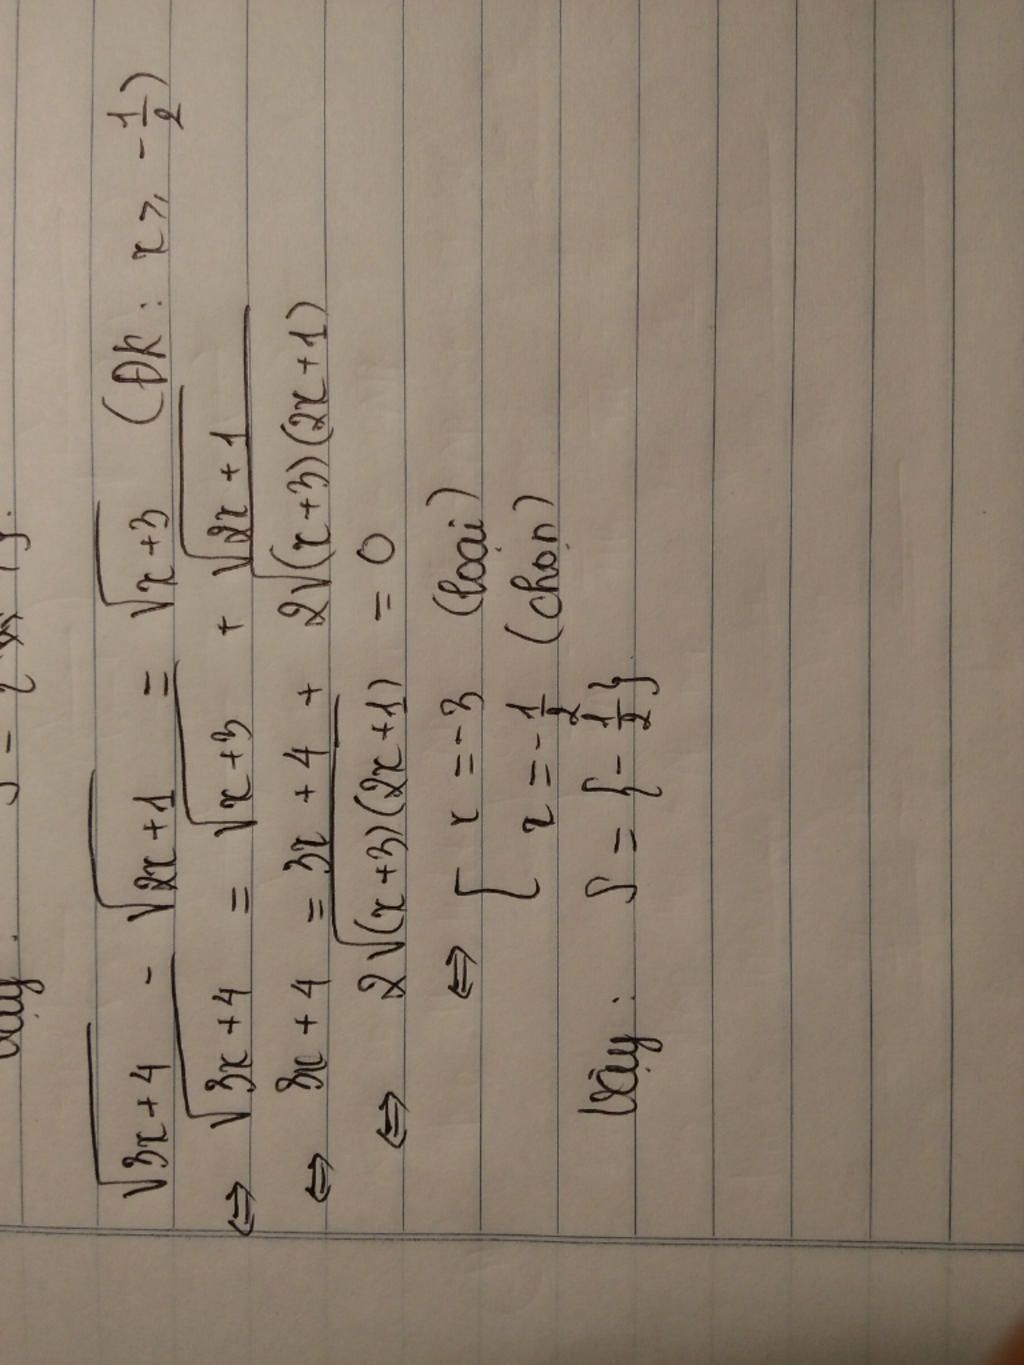 √(3x+4) - √(2x+1) = √(x+3) (ĐK: x ≥ -1/2)
⇔ √(3x+4) = √(x+3) + √(2x+1)
⇔ 3x+4 = 3x+4 + 2√((x+3)(2x+1))
⇔ 2√((x+3)(2x+1)) = 0
⇔ [ x = -3 (loại)
x = -1/2 (chọn)
Vậy: S = {-1/2}